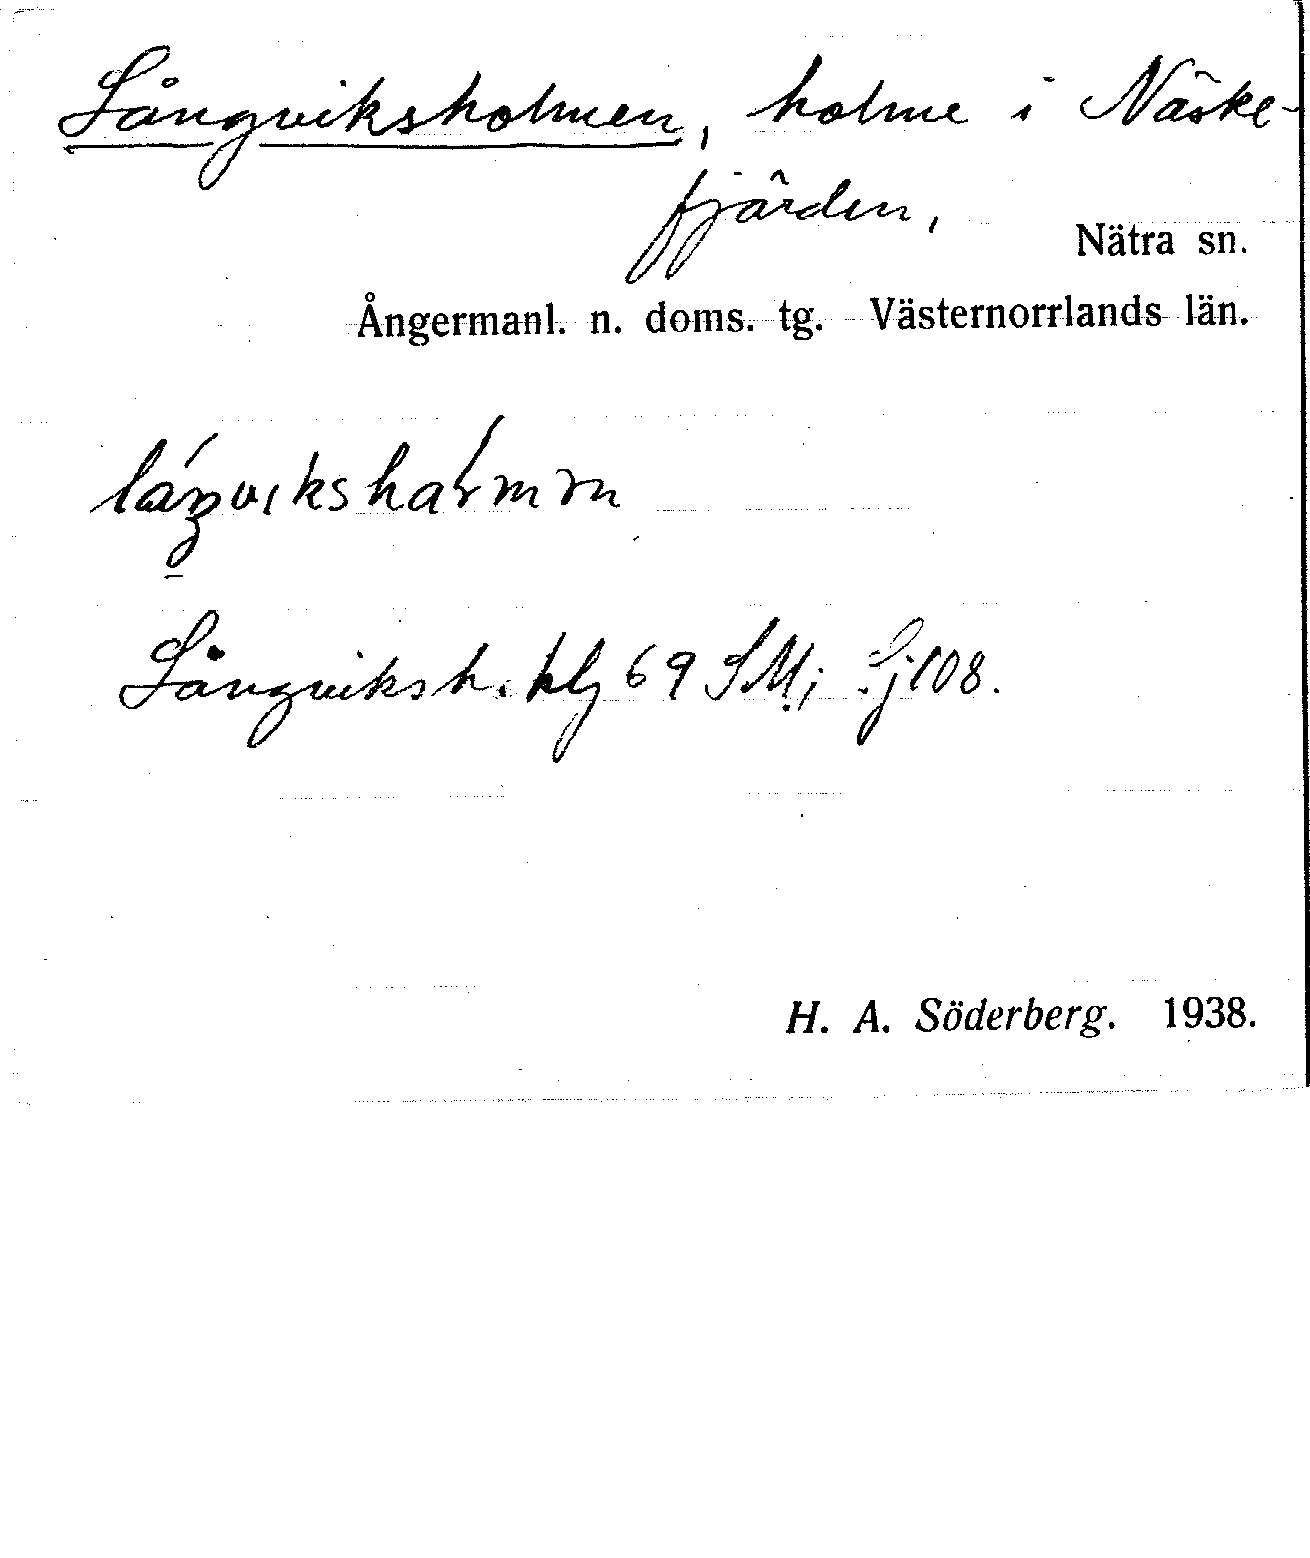 Långviksholmen, holme i Näske-
fjärden,
Nätra sn.
Ångermanl. n. doms. tg. Västernorrlands län.
Långviksh. klg 69 SM; Sj 108.
H. A. Söderberg. 1938.